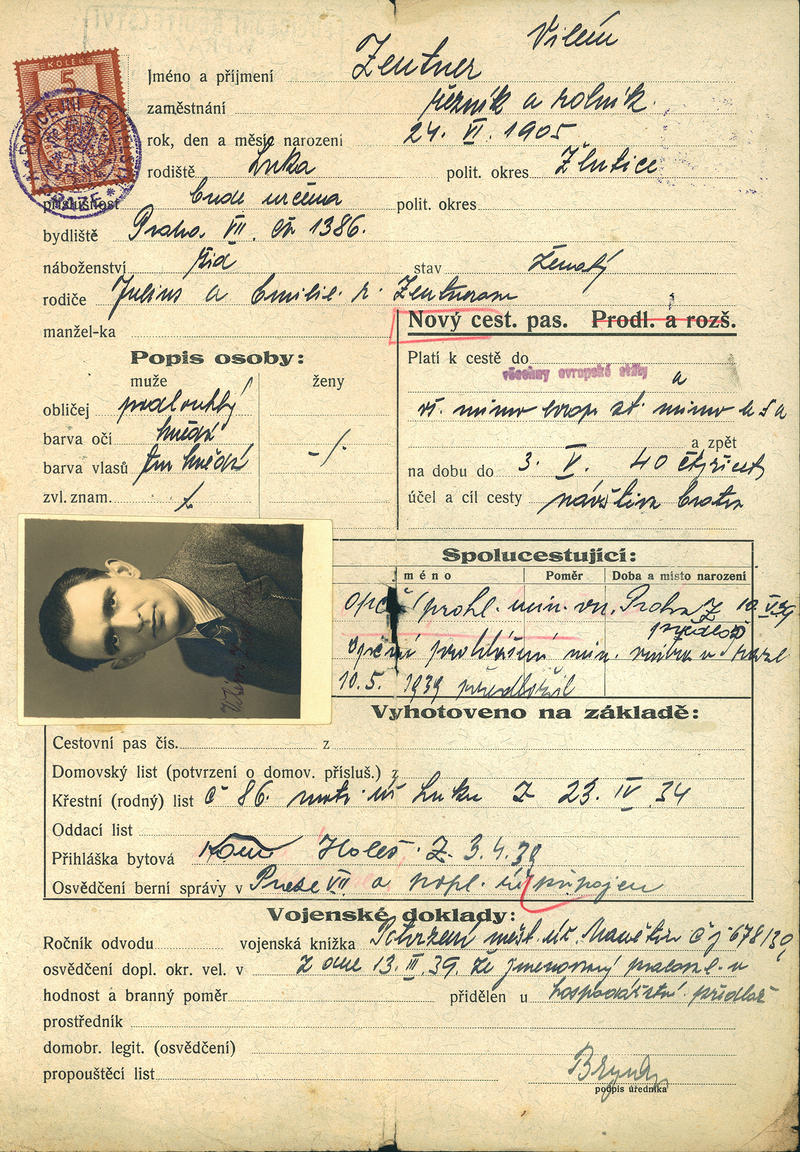 KOLEK
5
Vilém
Jméno a příjmení Zentner
zaměstnání řezník a rolník.
rok, den a měsíc narození 24. VI. 1905
rodiště Luka polit. okres Žlutice
příslušnost bude určena polit. okres
bydliště Praha. VII. čp. 1386.
náboženství žid stav ženatý
rodiče Julius a Emilie r. Zentnerova
manžel-ka
Nový cest. pas. Prodl. a rozš.
Popis osoby:
muže ženy
obličej podlouhlý
barva očí hnědé
barva vlasů tm hnědé
zvl. znam.
Platí k cestě do
všechny evropské státy a
vš. mimo evrop. st. mimo USA
a zpět
na dobu do 3. V. 40 čtyřicet
účel a cíl cesty návštěva bratra
Spolucestující:
Jméno Poměr Doba a místo narození
opč. prohl. min. vn. Praha Z 10.V.39
předlož
opční prohlášení min. vnitra v Praze
10.5. 1939 předložil
Vilém
Vyhotoveno na základě:
Cestovní pas čís. z
Domovský list (potvrzení o domov. přísluš.) z
Křestní (rodný) list č 86. matr. úř Luka Z 23. IV 34
Oddací list
Přihláška bytová Holeš. Z. 3.4.39
Osvědčení berní správy v Praze VII a popl. úř připojen
Vojenské doklady:
Ročník odvodu vojenská kniížka Potvrzení měst. úř. Manětín čj 678/39
osvědčení dopl. okr. vel. v z dne 13. III. 39. že jmenovaný v
hodnost a branný poměr přidělen u hospodářství předlož
prostředník
domobr. legit. (osvědčení)
propouštěcí list
podpis úředníka